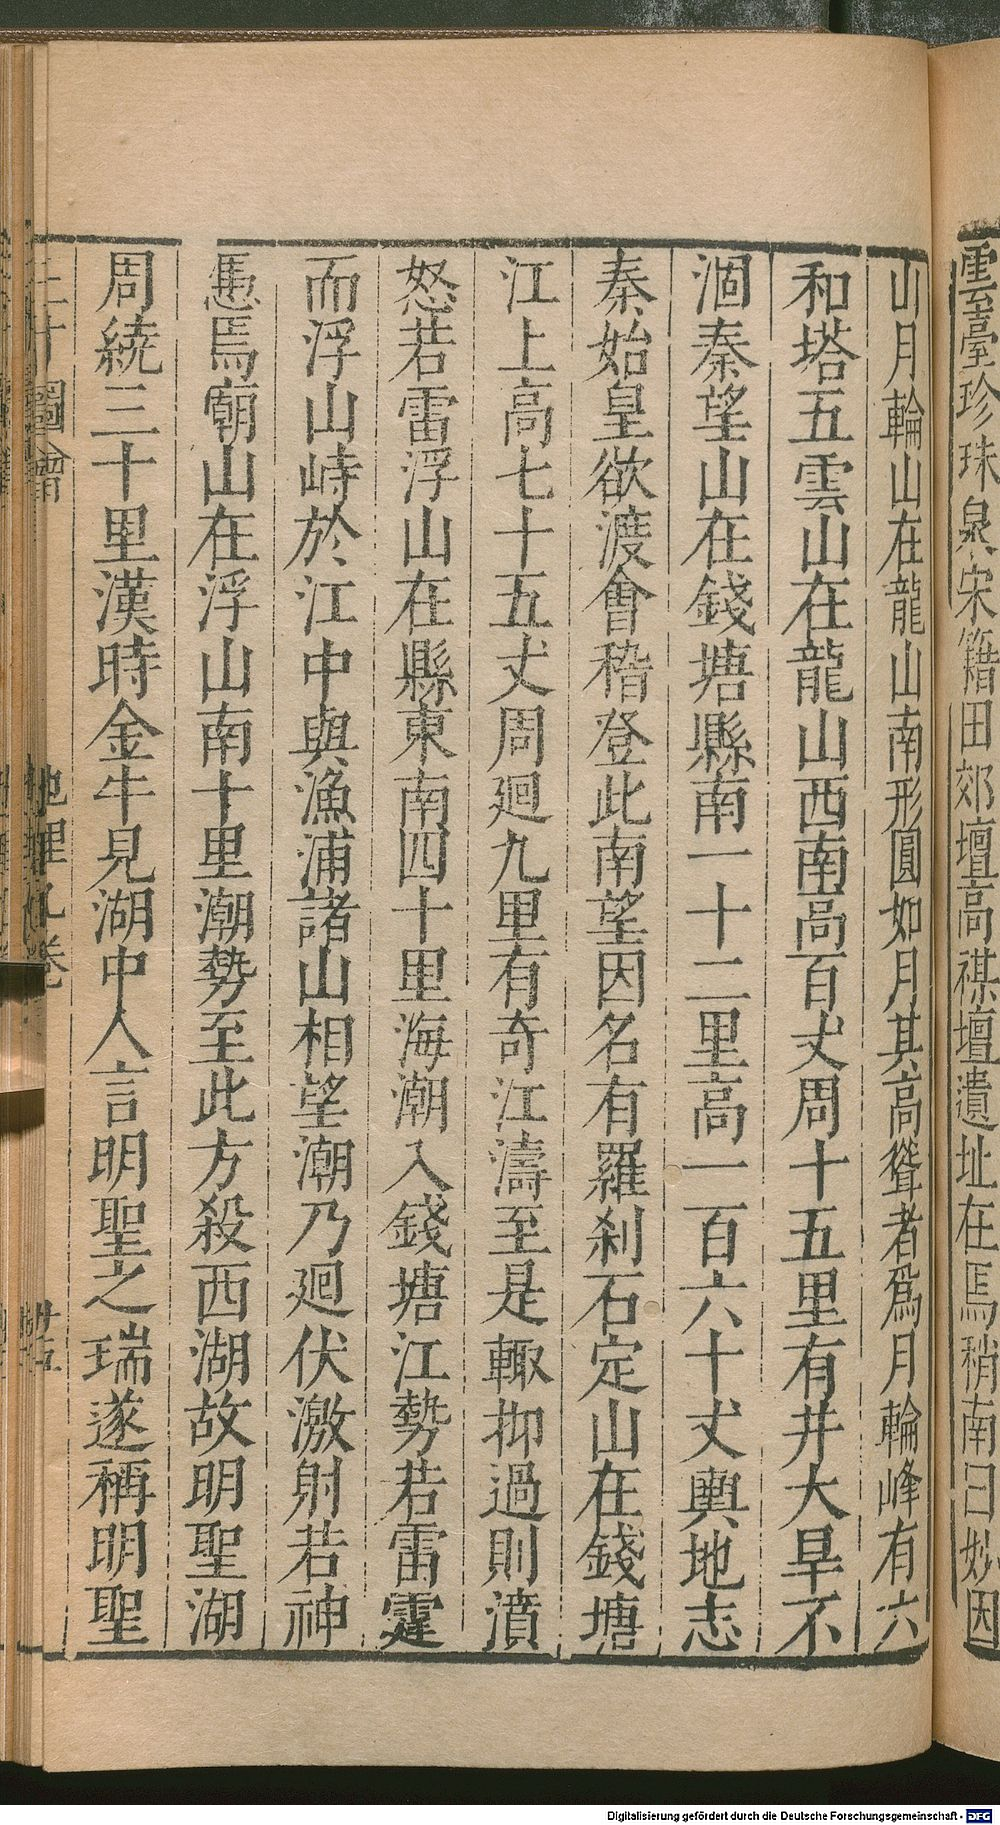 雲臺珍珠泉宋籍田郊壇高禖壇遺址在焉稍南曰妙因
山月輪山在龍山南形圓如月其高聳者爲月輪峰有六
和塔五雲山在龍山西南高百丈周十五里有井大旱不
涸秦望山在錢塘縣南一十二里高一百六十丈輿地志
秦始皇欲渡會稽登此南望因名有羅刹石定山在錢塘
江上高七十五丈周廻九里有奇江濤至是輙抑過則濆
怒若雷浮山在縣東南四十里海潮入錢塘江勢若雷霆
而浮山峙於江中與漁浦諸山相望潮乃廻伏激射若神
慿焉廟山在浮山南十里潮勢至此方殺西湖故明聖湖
周繞三十里漢時金牛見湖中人言明聖之瑞遂稱明聖
三才圖會 地理九卷 廿五
Digitalisierung gefördert durch die Deutsche Forschungsgemeinschaft - DFG